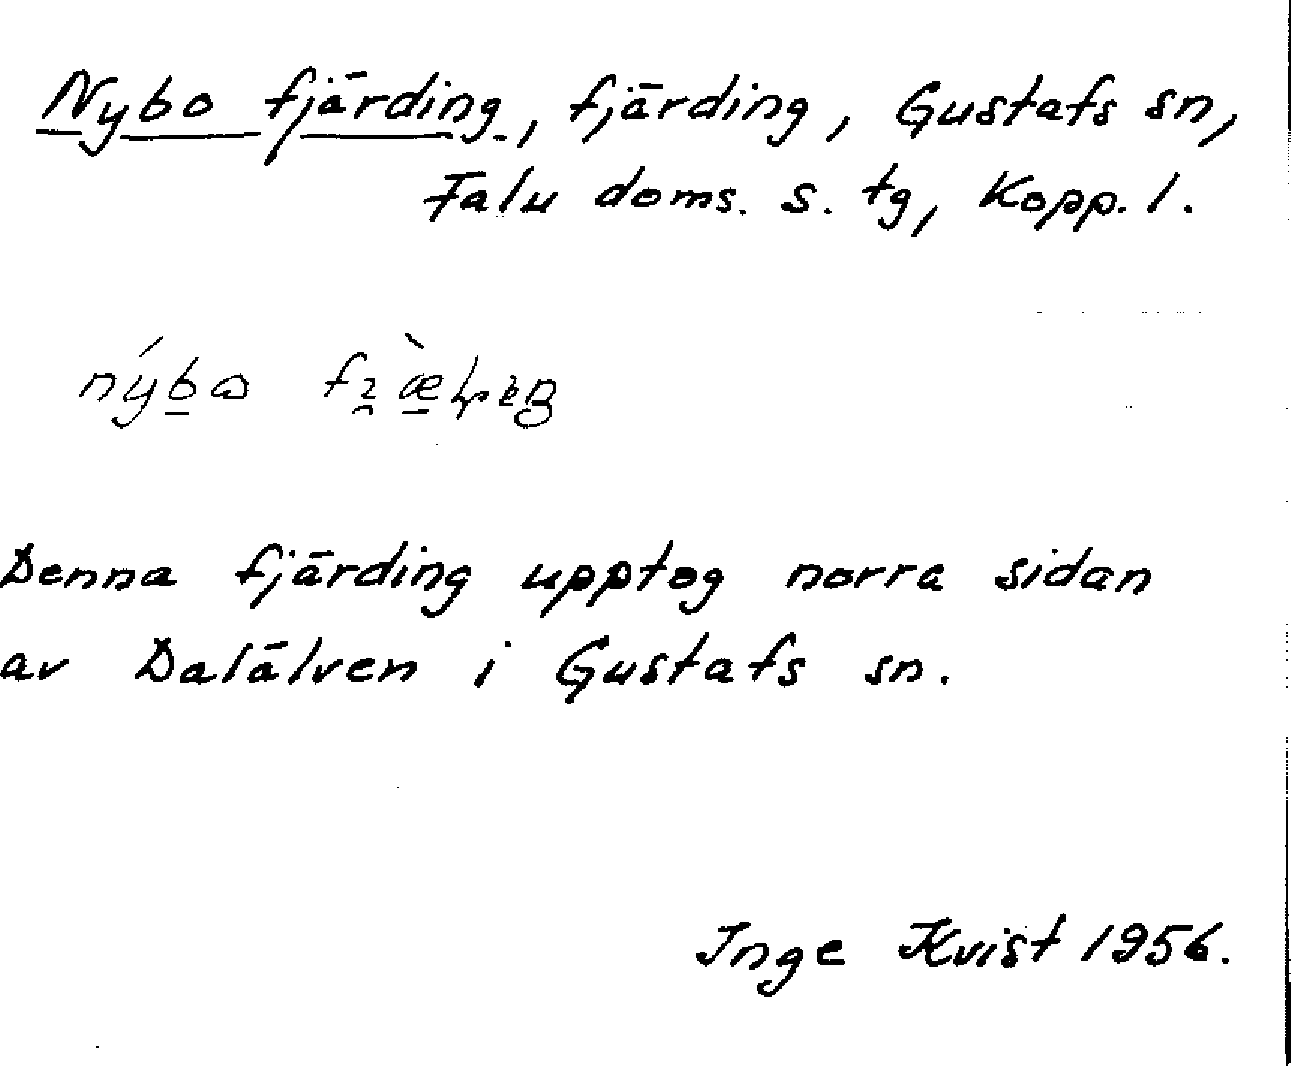 Nybo fjärding, fjärding, Gustafs sn,
Falu doms. s. tg, Kopp. l.
Denna fjärding upptog norra sidan
av Dalälven i Gustafs sn.
Inge Kvist 1956.